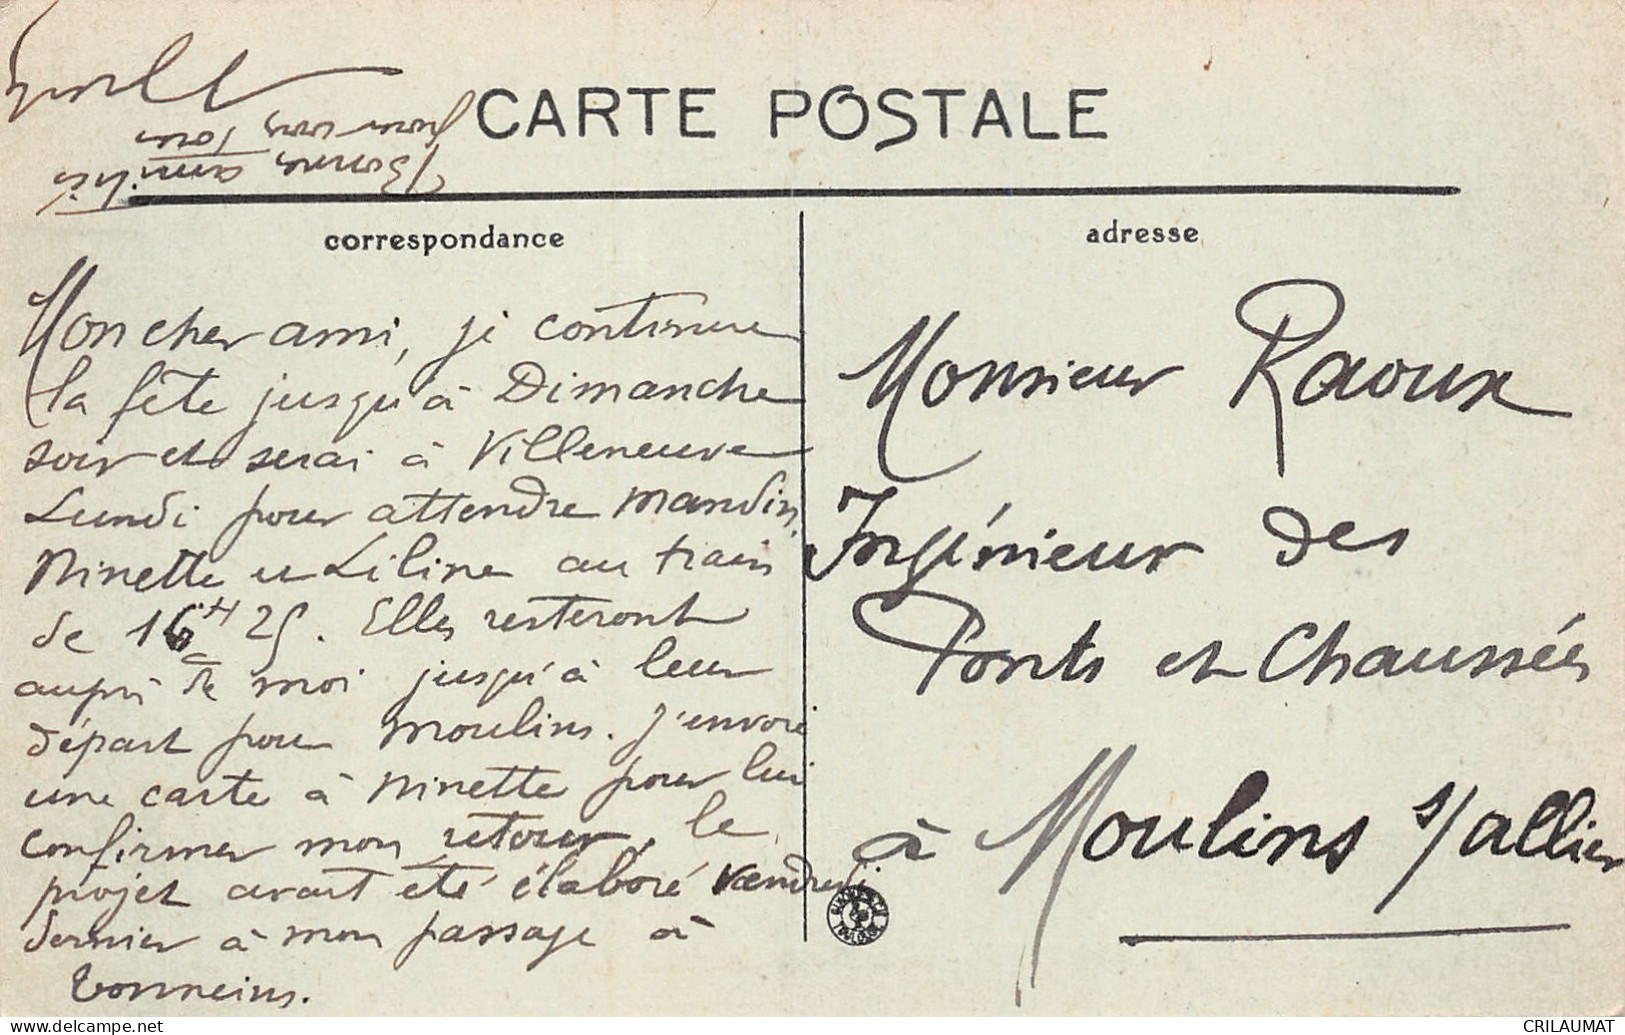 CARTE POSTALE
correspondance
adresse
Mon cher ami, je continue
la fête jusqu'à Dimanche
soir et serai à Villeneuve
Lundi pour attendre Mandin,
Ninette et Liline au train
de 16H 25. Elles resteront
auprès de moi jusqu'à leur
départ pour Moulins. J'envoie
une carte à Ninette pour lui
confirmer mon retour, le
projet avait été élaboré Vendredi
dernier à mon passage à
Tonneins.
Bonnes amitiés
pour vous tous
Monsieur Raoux
Ingénieur des
Ponts et Chaussées
à Moulins s/allier
CRILAUMAT